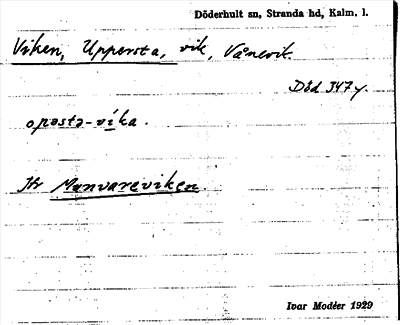 Döderhult sn, Stranda hd, Kalm. l.
Viken, Uppersta, vik, Vånevik.
Död 347 y.
opəstə-víka.
Jfr Manvareviken.
Ivar Modéer 1929